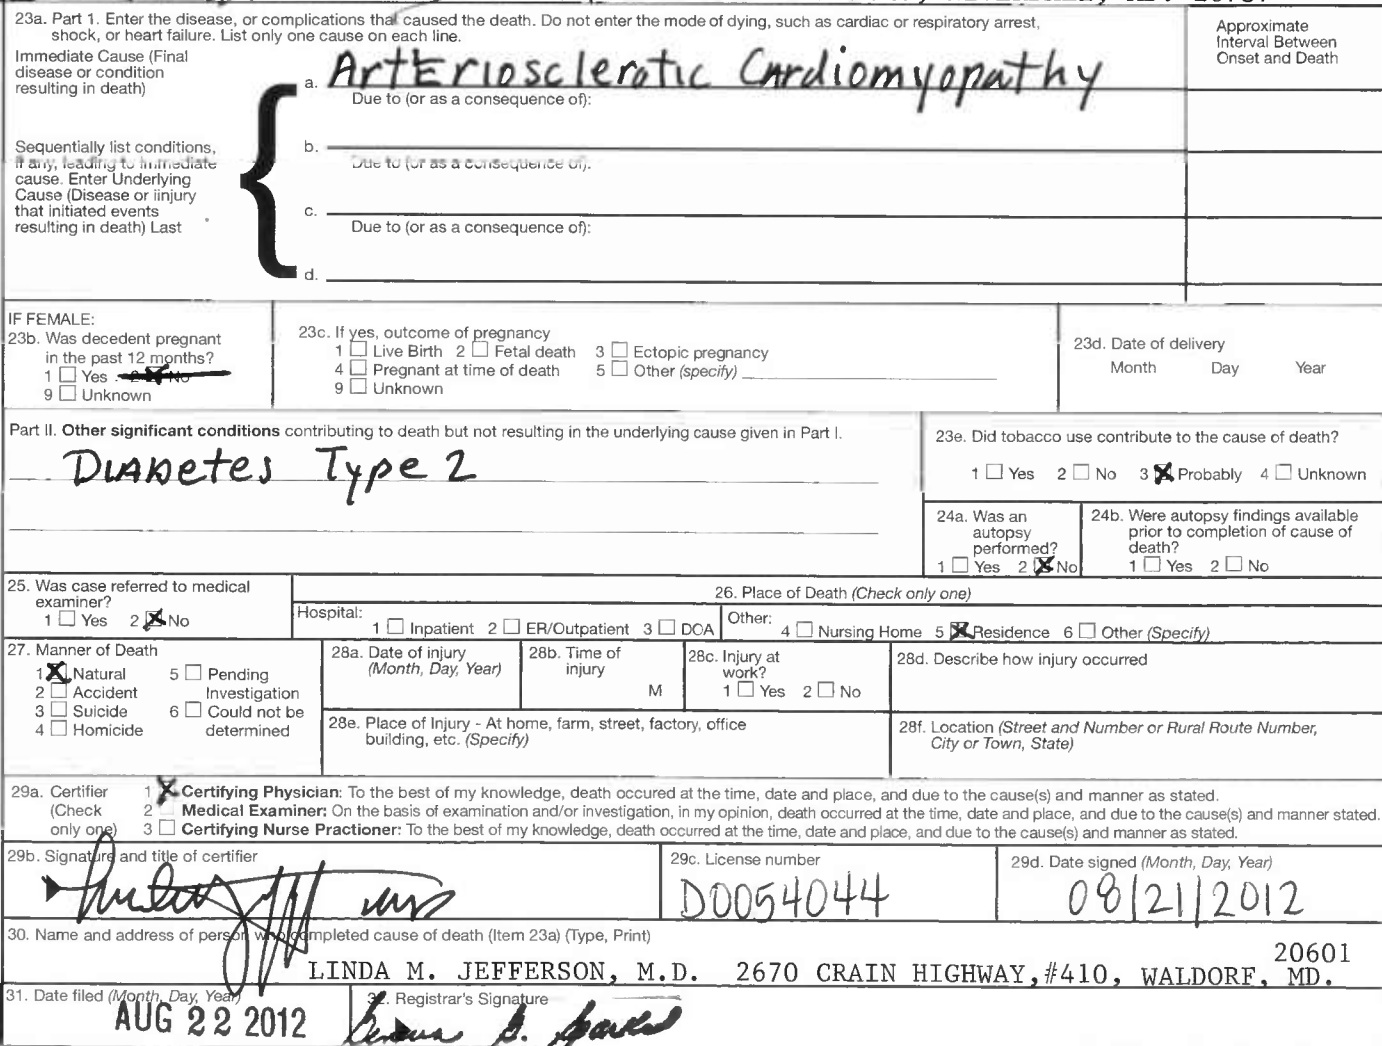 23a. Part 1. Enter the disease, or complications that caused the death. Do not enter the mode of dying, such as cardiac or respiratory arrest,
shock, or heart failure. List only one cause on each line.
Approximate
Interval Between
Onset and Death
Immediate Cause (Final
disease or condition
resulting in death)
a. Arteriosclerotic Cardiomyopathy
Due to (or as a consequence of):
Sequentially list conditions,
if any, leading to immediate
cause. Enter Underlying
Cause (Disease or iinjury
that initiated events
resulting in death) Last
b.
Due to (or as a consequence of):
c.
Due to (or as a consequence of):
d.
IF FEMALE:
23b. Was decedent pregnant
in the past 12 months?
1 ☐ Yes 2 ☒ No
9 ☐ Unknown
23c. If yes, outcome of pregnancy
1 ☐ Live Birth 2 ☐ Fetal death 3 ☐ Ectopic pregnancy
4 ☐ Pregnant at time of death 5 ☐ Other (specify)
9 ☐ Unknown
23d. Date of delivery
Month Day Year
Part II. Other significant conditions contributing to death but not resulting in the underlying cause given in Part I.
Diabetes Type 2
23e. Did tobacco use contribute to the cause of death?
1 ☐ Yes 2 ☐ No 3 ☒ Probably 4 ☐ Unknown
24a. Was an
autopsy
performed?
1 ☐ Yes 2 ☒ No
24b. Were autopsy findings available
prior to completion of cause of
death?
1 ☐ Yes 2 ☐ No
25. Was case referred to medical
examiner?
1 ☐ Yes 2 ☒ No
26. Place of Death (Check only one)
Hospital: 1 ☐ Inpatient 2 ☐ ER/Outpatient 3 ☐ DOA Other: 4 ☐ Nursing Home 5 ☒ Residence 6 ☐ Other (Specify)
27. Manner of Death
1 ☒ Natural 5 ☐ Pending
2 ☐ Accident Investigation
3 ☐ Suicide 6 ☐ Could not be
4 ☐ Homicide determined
28a. Date of injury
(Month, Day, Year)
28b. Time of
injury
M
28c. Injury at
work?
1 ☐ Yes 2 ☐ No
28d. Describe how injury occurred
28e. Place of Injury - At home, farm, street, factory, office
building, etc. (Specify)
28f. Location (Street and Number or Rural Route Number,
City or Town, State)
29a. Certifier
(Check
only one)
1 ☒ Certifying Physician: To the best of my knowledge, death occured at the time, date and place, and due to the cause(s) and manner as stated.
2 Medical Examiner: On the basis of examination and/or investigation, in my opinion, death occurred at the time, date and place, and due to the cause(s) and manner stated.
3 ☐ Certifying Nurse Practioner: To the best of my knowledge, death occurred at the time, date and place, and due to the cause(s) and manner as stated.
29b. Signature and title of certifier
29c. License number
D0054044
29d. Date signed (Month, Day, Year)
08/21/2012
30. Name and address of person who completed cause of death (Item 23a) (Type, Print)
20601
LINDA M. JEFFERSON, M.D. 2670 CRAIN HIGHWAY,#410, WALDORF, MD.
31. Date filed (Month, Day, Year)
AUG 22 2012
32. Registrar's Signature